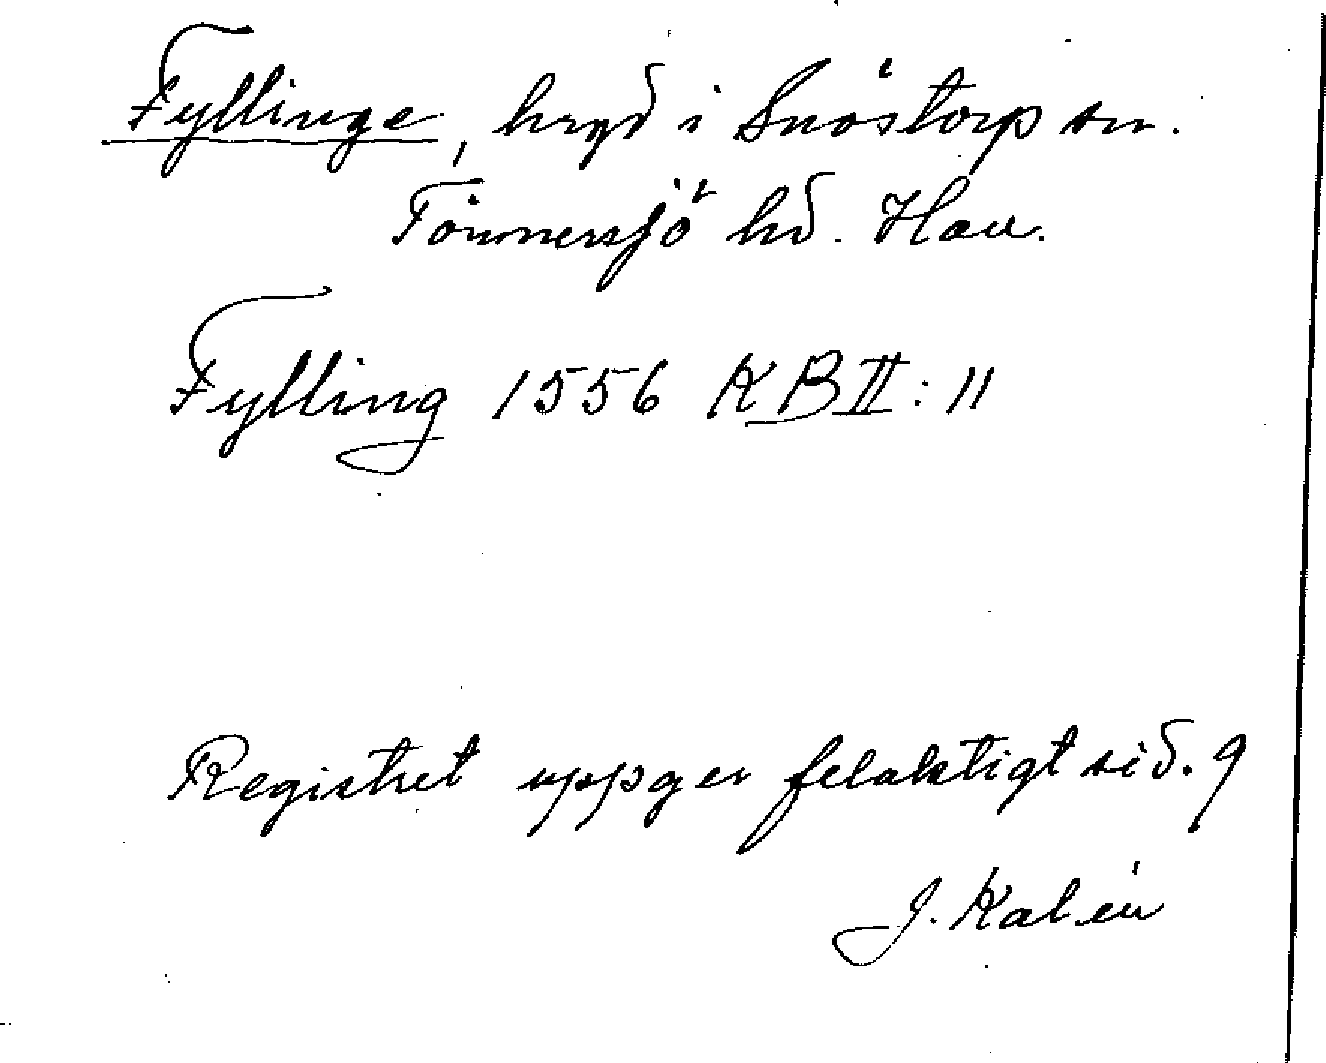 Fyllinge, hryd i Snöstorp sn.
Tönnersjö hd. Hall.
Fylling 1556 KB II: 11
Registret uppger felaktigt sid. 9
J. Kalén